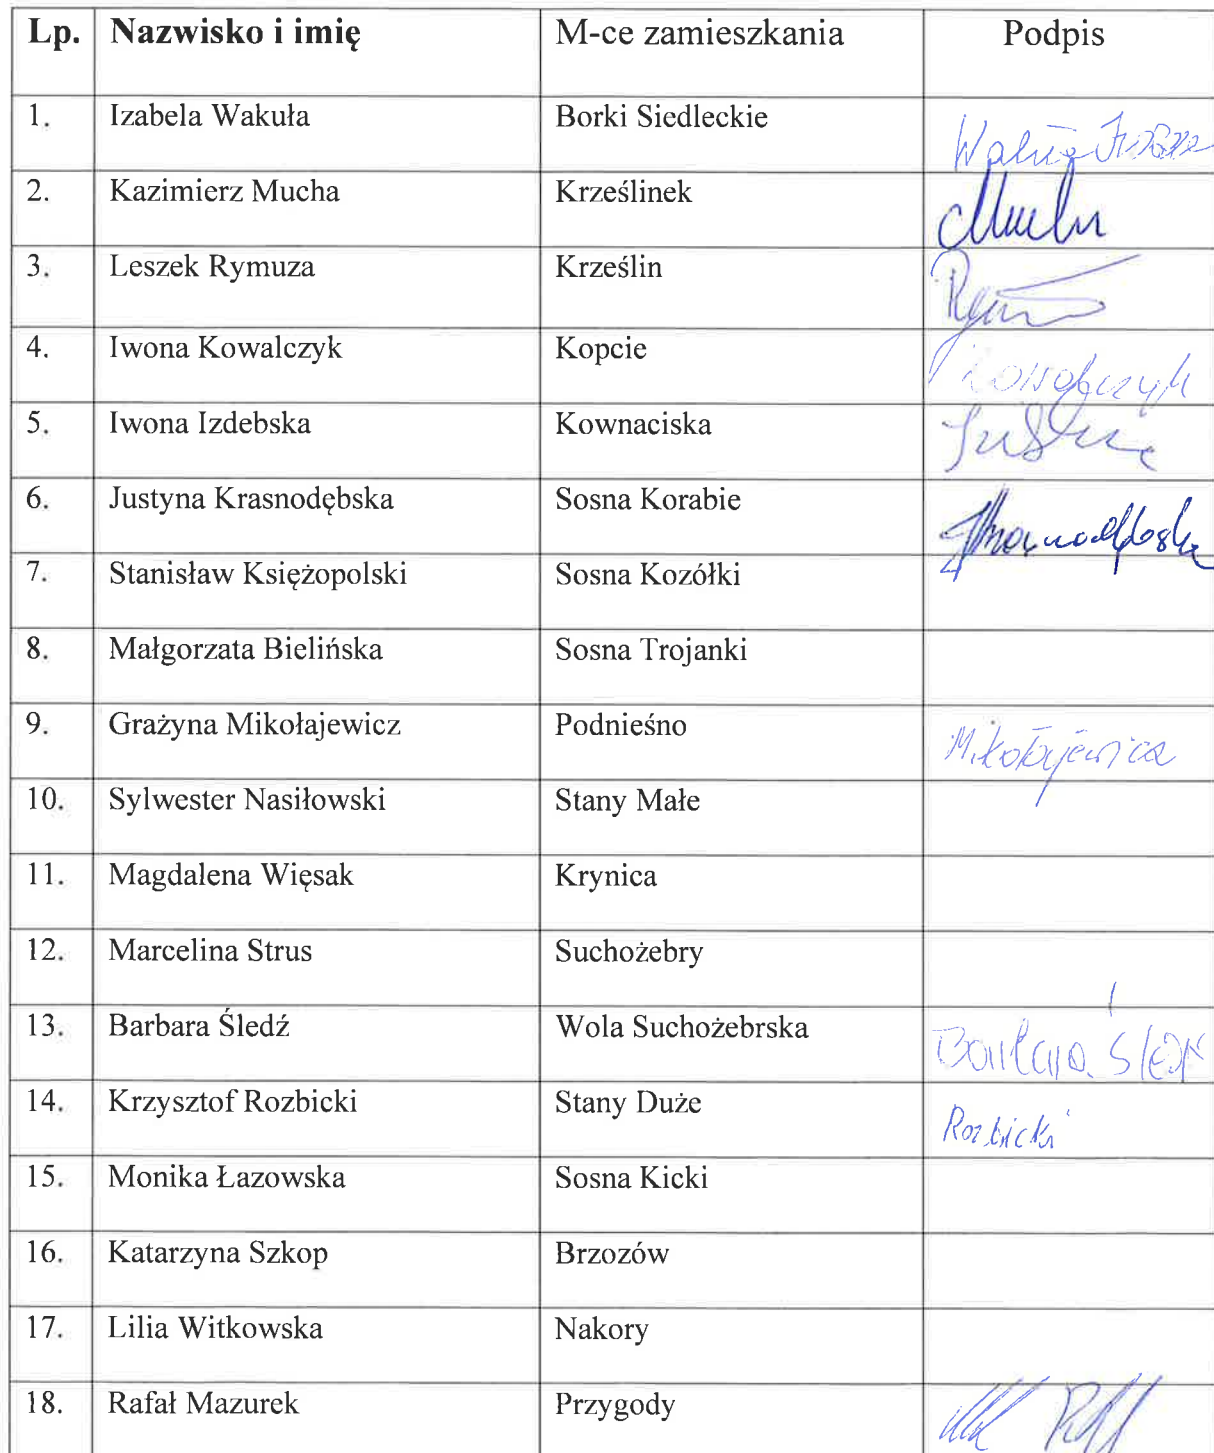 Lp. Nazwisko i imię M-ce zamieszkania Podpis
1. Izabela Wakuła Borki Siedleckie
2. Kazimierz Mucha Krześlinek Mucha
3. Leszek Rymuza Krześlin
4. Iwona Kowalczyk Kopcie Kowalczyk
5. Iwona Izdebska Kownaciska
6. Justyna Krasnodębska Sosna Korabie
7. Stanisław Księżopolski Sosna Kozółki
8. Małgorzata Bielińska Sosna Trojanki
9. Grażyna Mikołajewicz Podnieśno Mikołajewicz
10. Sylwester Nasiłowski Stany Małe
11. Magdalena Więsak Krynica
12. Marcelina Strus Suchożebry
13. Barbara Śledź Wola Suchożebrska Barbara Śledź
14. Krzysztof Rozbicki Stany Duże Rozbicki
15. Monika Łazowska Sosna Kicki
16. Katarzyna Szkop Brzozów
17. Lilia Witkowska Nakory
18. Rafał Mazurek Przygody